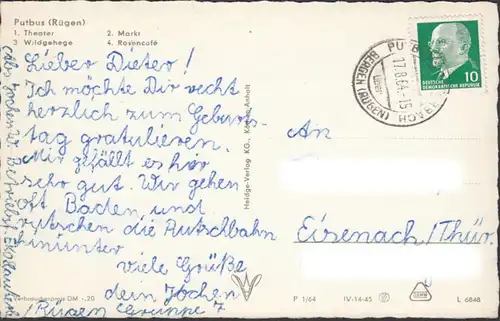 Putbus (Rügen)
1. Theater 2. Markt
3 Wildgehege 4. Rosencafé
Lieber Dieter!
Ich möchte Dir recht
herzlich zum Geburts-
tag gratulieren.
Mir gefällt es hier
sehr gut. Wir gehen
oft Baden und
rutschen die Rutschbahn
hinunter
viele Grüße
dein Jochen
Rügen Gruppe 7
Verbraucherpreis DM -,20
Heldge-Verlag KG., Köthen-Anhalt
PUTB
17.8.64-15
über
BERGEN (RÜGEN)
10
DEUTSCHE
DEMOKRATISCHE REPUBLIK
An
Eisenach/Thür
P 1/64 IV-14-45 L 6848